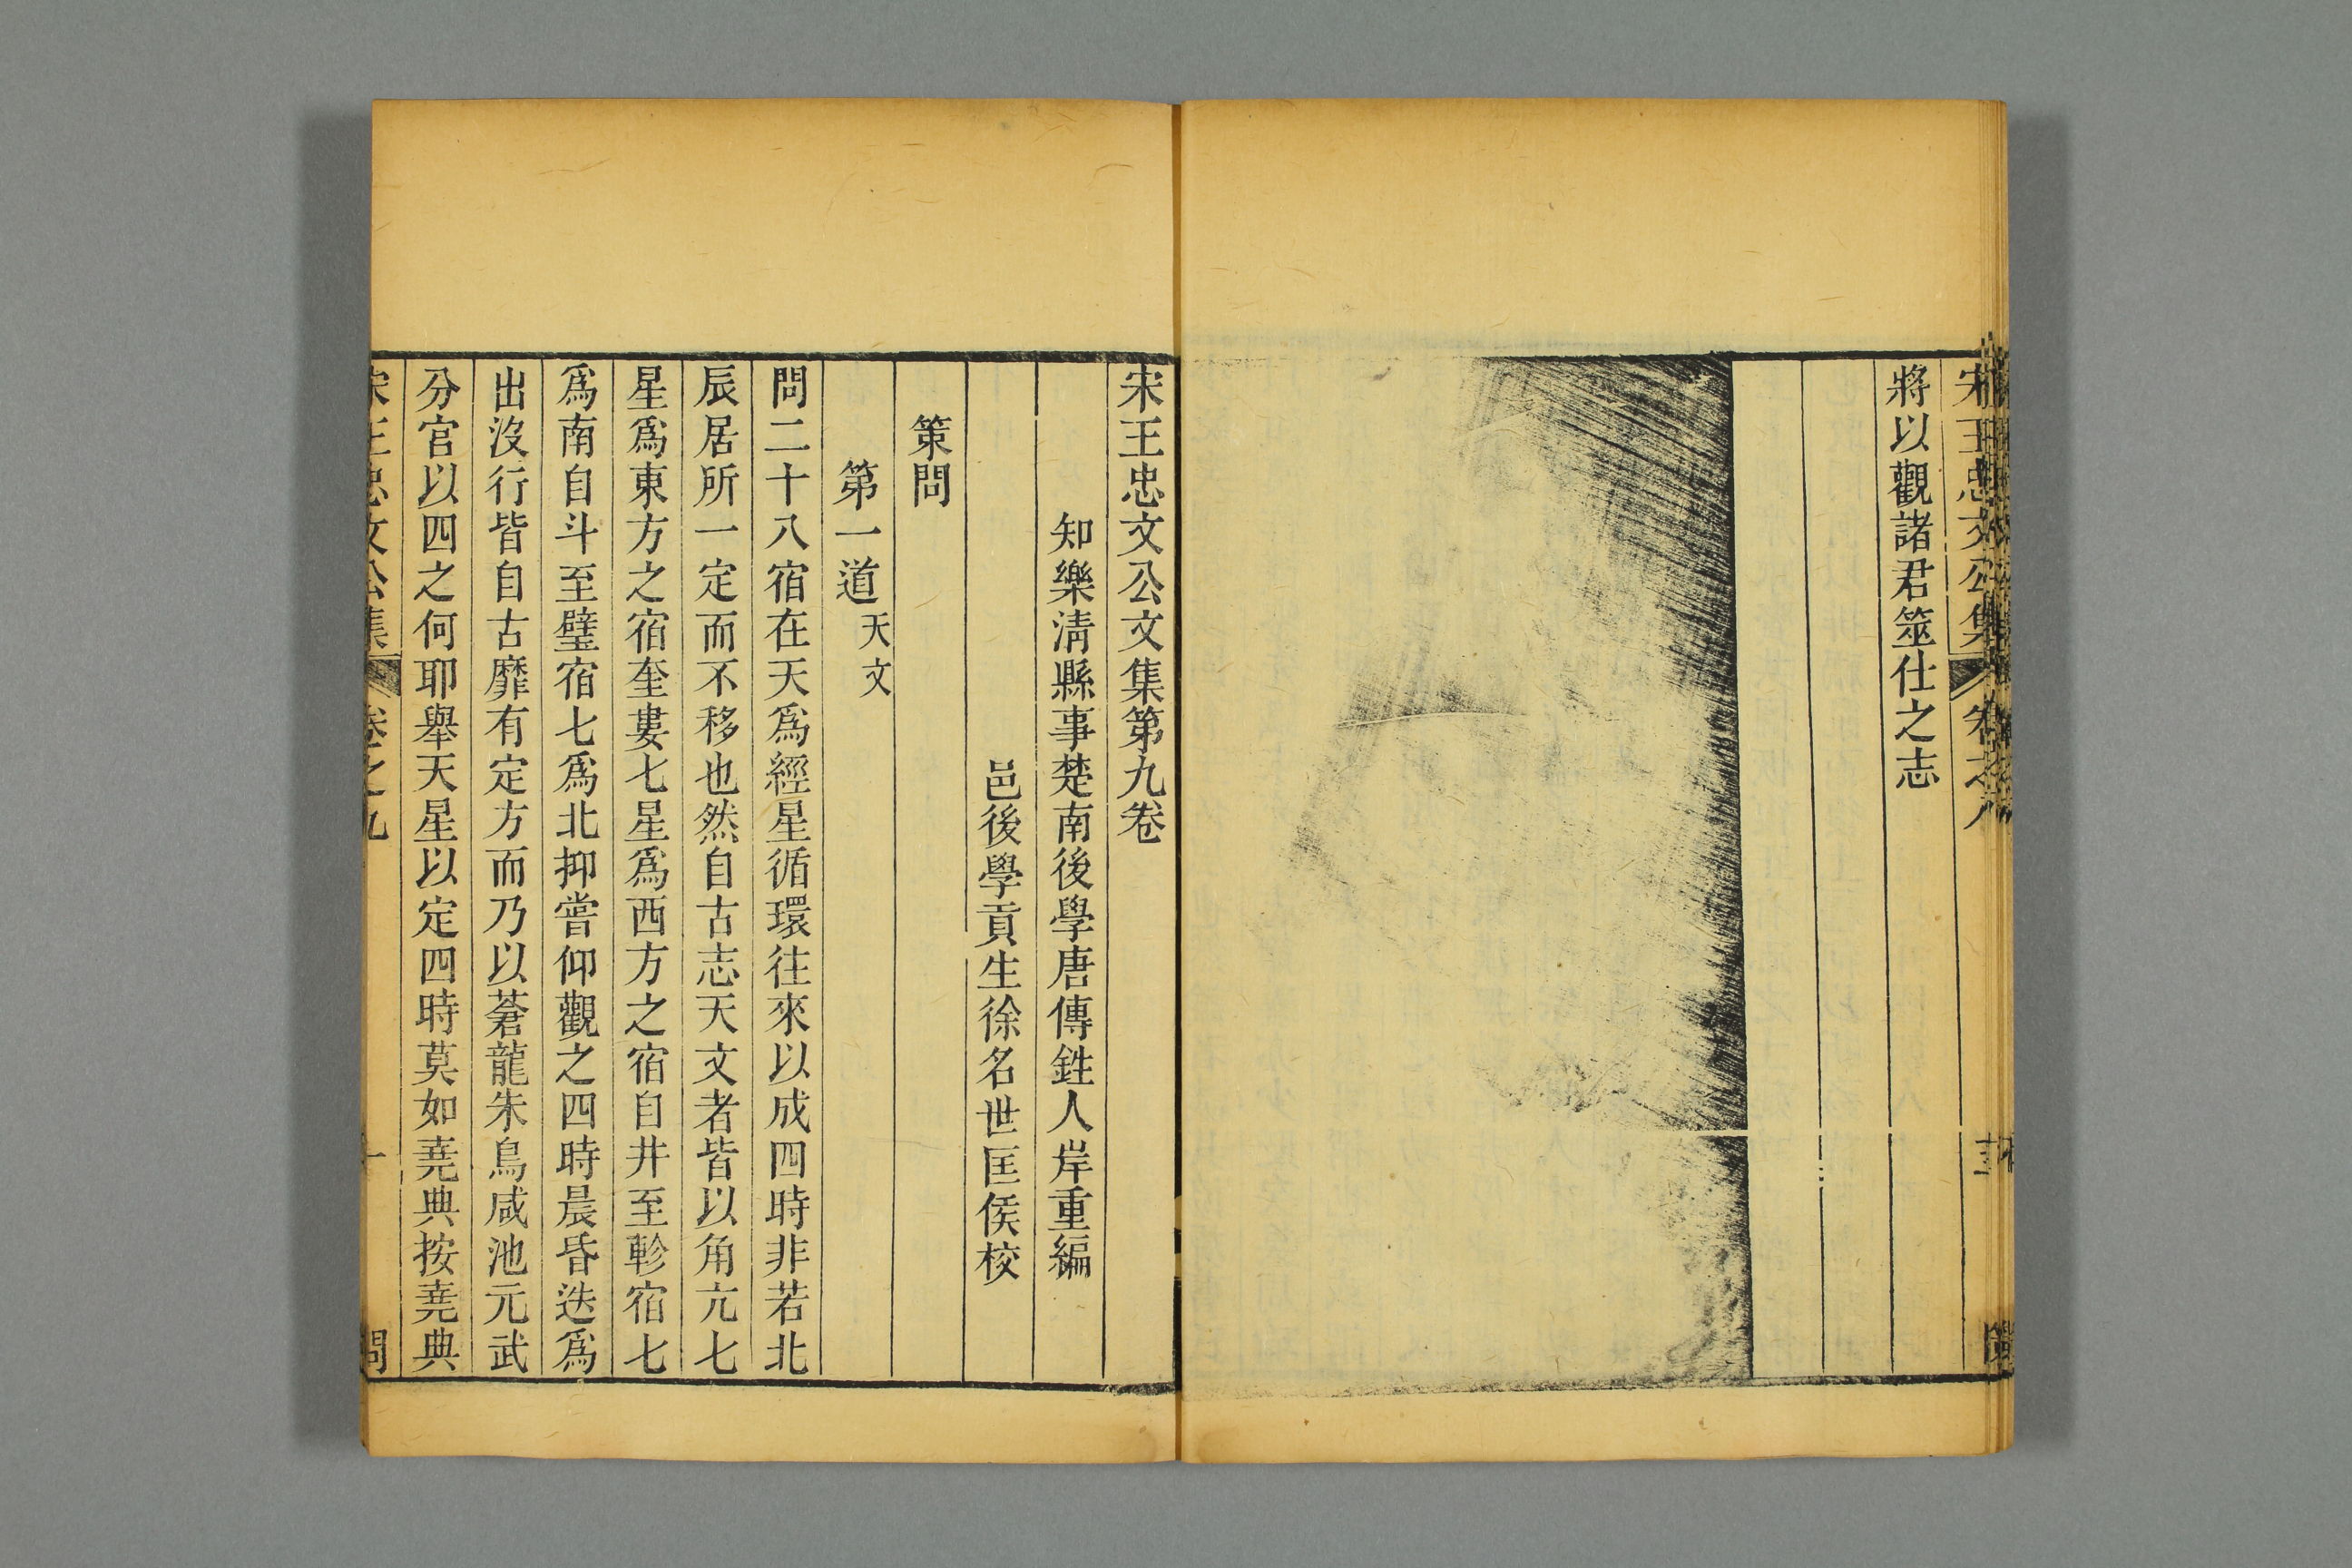 宋王忠文公集
卷之八
將以觀諸君筮仕之志
宋王忠文公文集第九卷
知樂清縣事楚南後學唐傳鉎人岸重編
邑後學貢生徐名世匡侯校
策問
第一道天文
問二十八宿在天爲經星循環往來以成四時非若北
辰居所一定而不移也然自古志天文者皆以角亢七
星爲東方之宿奎婁七星爲西方之宿自井至軫宿七
爲南自斗至壁宿七爲北抑嘗仰觀之四時晨昏迭爲
出沒行皆自古靡有定方而乃以蒼龍朱鳥咸池元武
分官以四之何耶舉天星以定四時莫如堯典按堯典
宋王忠文公集
卷之九
一
問